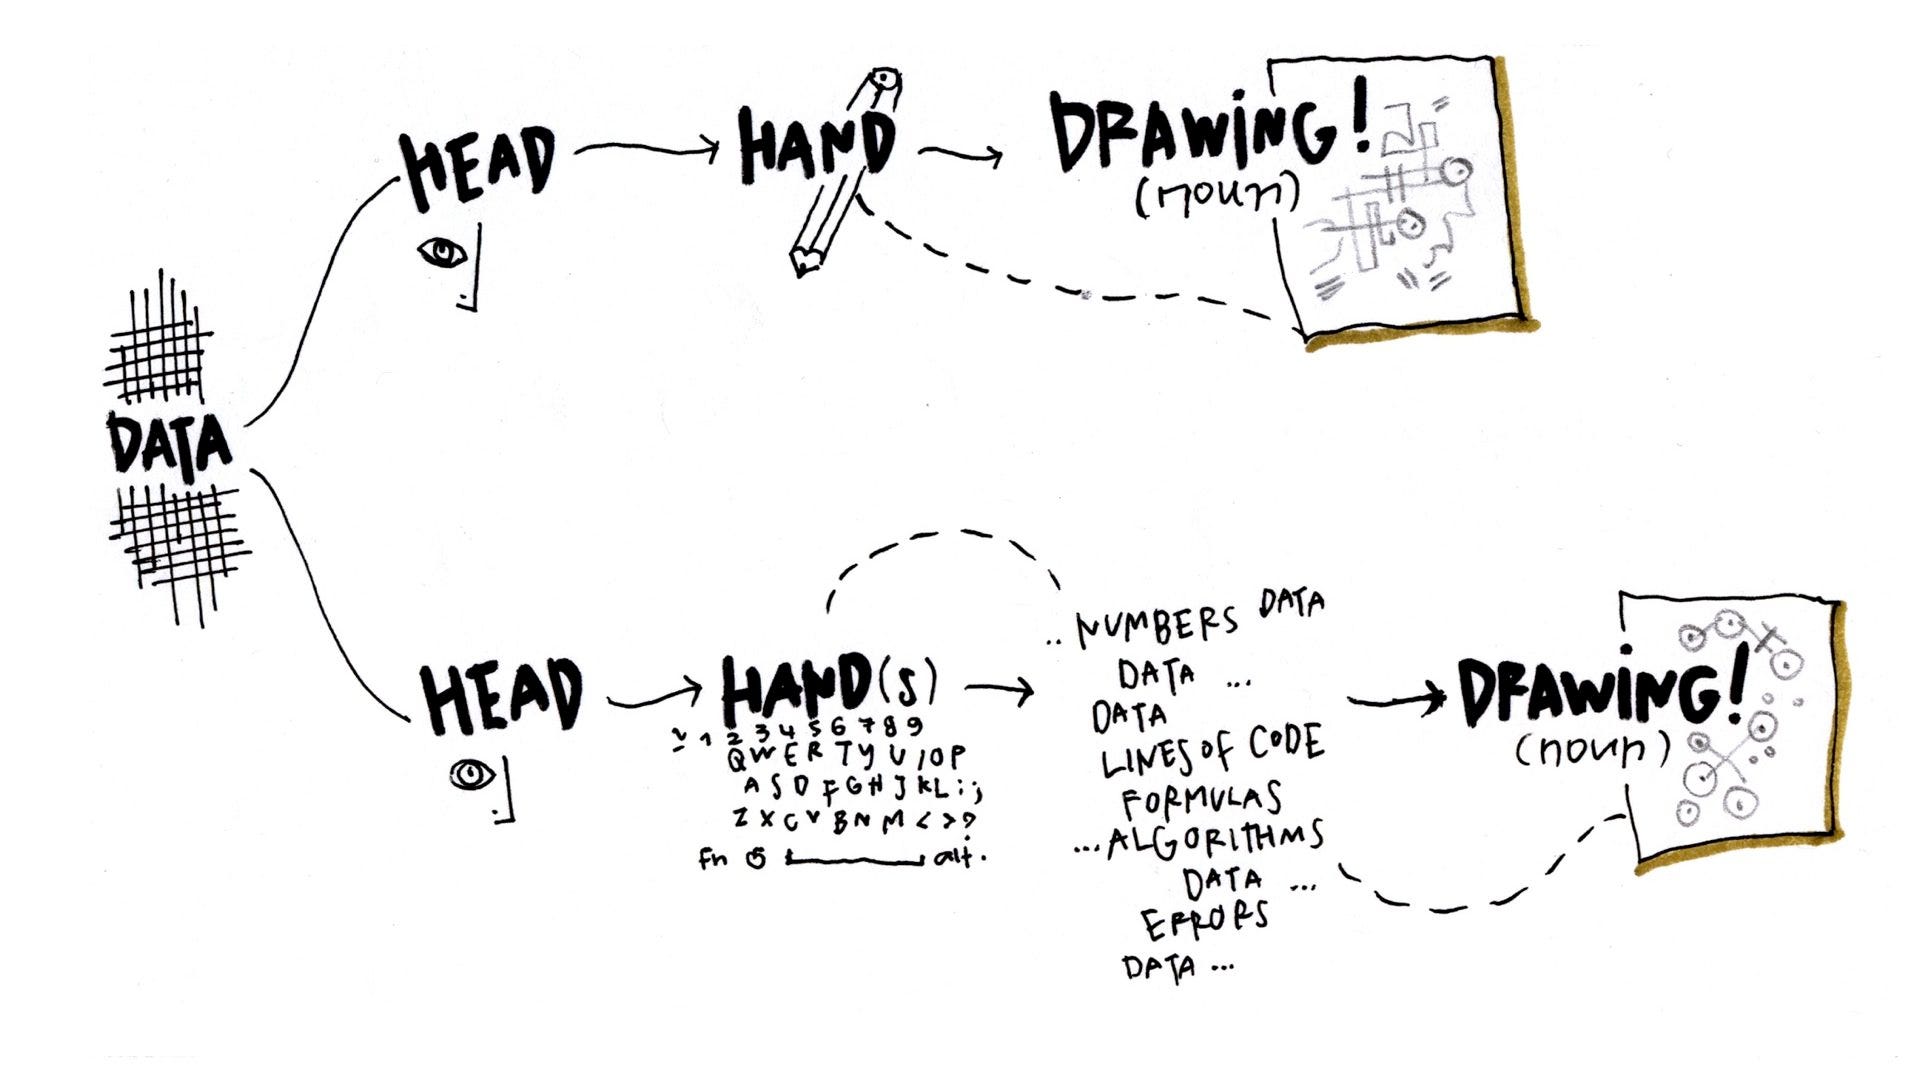 DATA
HEAD
HAND
DRAWING!
(noun)
HEAD
HAND(s)
1 2 3 4 5 6 7 8 9
Q W E R T Y U I O P
A S D F G H J K L : ;
Z X C V B N M < > ?
Fn alt.
.. NUMBERS DATA
DATA ...
DATA
LINES OF CODE
FORMULAS
... ALGORITHMS
DATA ...
ERRORS
DATA ...
DRAWING!
(noun)